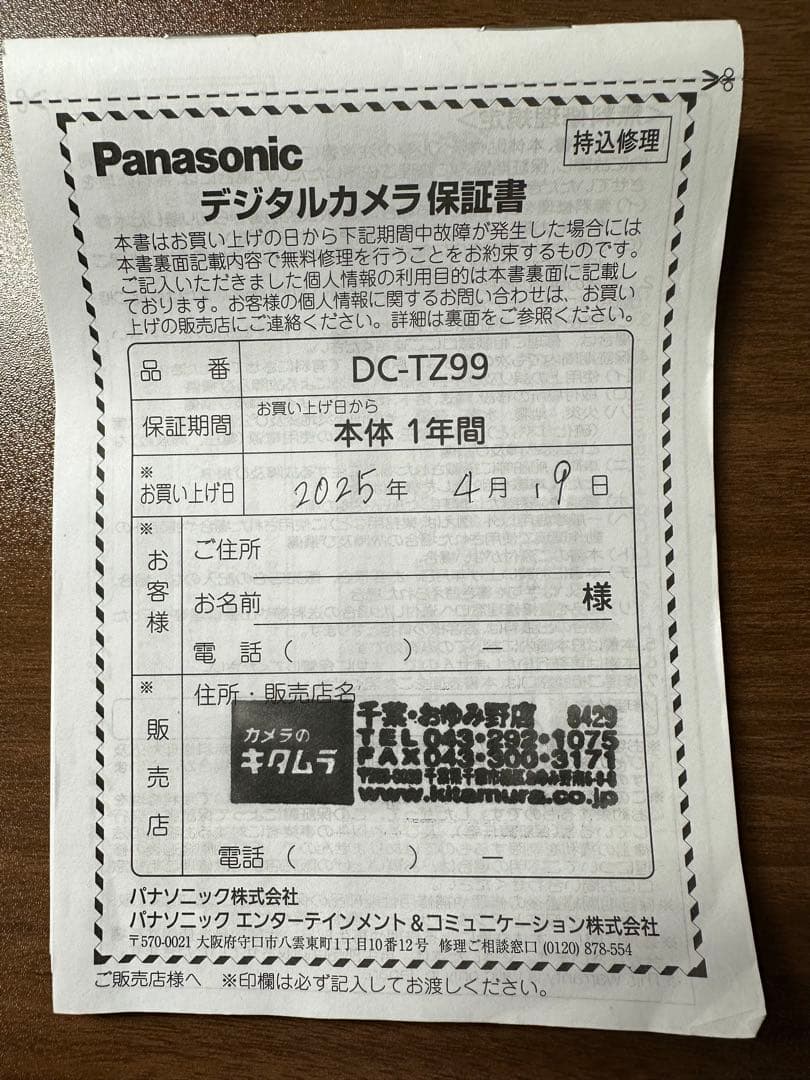 Panasonic
持込修理
デジタルカメラ保証書
本書はお買い上げの日から下記期間中故障が発生した場合には
本書裏面記載内容で無料修理を行うことをお約束するものです。
ご記入いただきました個人情報の利用目的は本書裏面に記載し
ております。お客様の個人情報に関するお問い合わせは、お買い
上げの販売店にご連絡ください。詳細は裏面をご参照ください。
品番 DC-TZ99
保証期間 お買い上げ日から
本体 1年間
※
お買い上げ日 2025年 4月 19日
※
お客様
ご住所
お名前 様
電話 ( ) ー
※
販売店
住所・販売店名
カメラの
キタムラ
千葉・おゆみ野店 8429
TEL 043・292・1075
FAX 043・300・3171
千葉県千葉市緑区おゆみ野南
www.kitamura.co.jp
電話 ( ) ー
パナソニック株式会社
パナソニック エンターテインメント&コミュニケーション株式会社
〒570-0021 大阪府守口市八雲東町1丁目10番12号 修理ご相談窓口 (0120) 878-554
ご販売店様へ ※印欄は必ず記入してお渡しください。